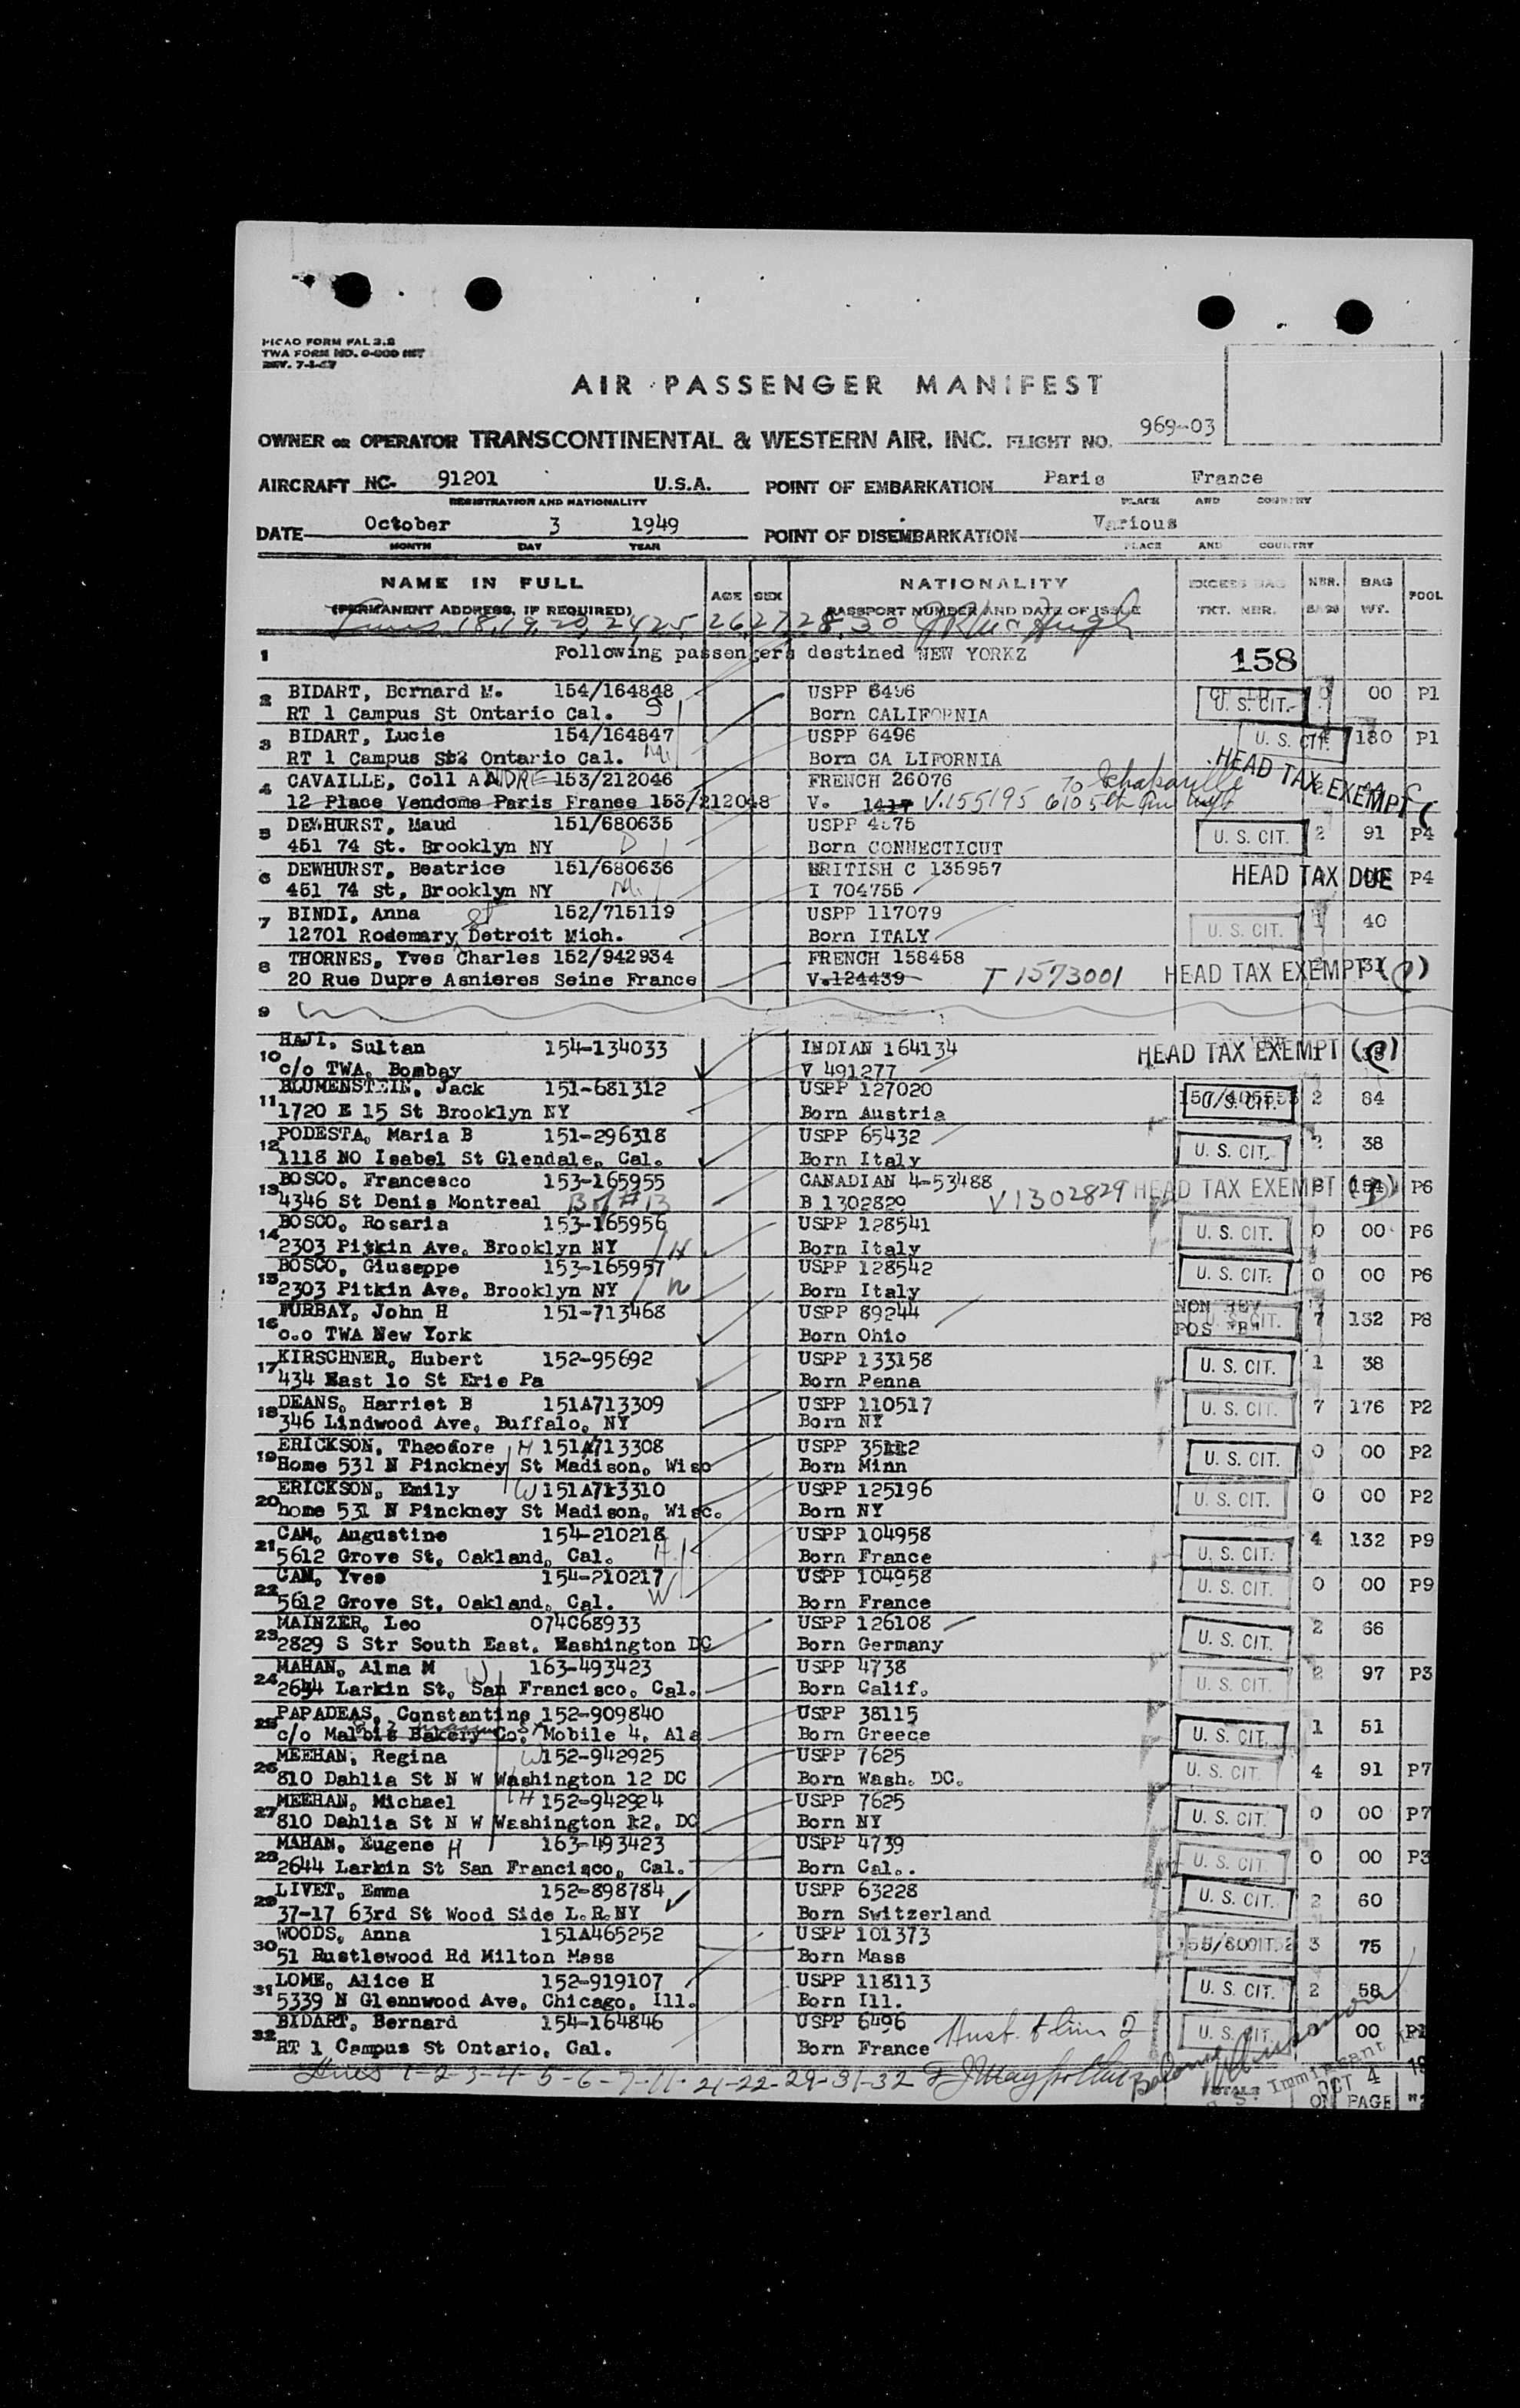 TWA FORM NO.
REV. 7-1-47
AIR PASSENGER MANIFEST
OWNER OR OPERATOR TRANSCONTINENTAL & WESTERN AIR, INC. FLIGHT NO. 969-03
AIRCRAFT NC. 91201 U.S.A. POINT OF EMBARKATION Paris France
REGISTRATION AND NATIONALITY PLACE AND COUNTRY
DATE October 3 1949 POINT OF DISEMBARKATION Various
MONTH DAY YEAR PLACE AND COUNTRY
NAME IN FULL AGE SEX NATIONALITY EXCESS BAG NBR. BAG POOL
(PERMANENT ADDRESS, IF REQUIRED) PASSPORT NUMBER AND DATE OF ISSUE TKT. NBR. BAGS WT.
18, 19, 20, 24, 25, 26, 27, 28, 30
1 Following passengers destined NEW YORKZ 158
2 BIDART, Bernard M. 154/164848 USPP 6496 U. S. CIT. 00 P1
RT 1 Campus St Ontario Cal. S Born CALIFORNIA
3 BIDART, Lucie 154/164847 USPP 6496 U. S. CIT. 180 P1
RT 1 Campus St Ontario Cal. M Born CA LIFORNIA
4 CAVAILLE, Coll A ANDRE 153/212046 FRENCH 26076 To HEAD TAX EXEMPT
12 Place Vendome Paris France 153/212048 V. V.155195 610 5th
5 DEWHURST, Maud 151/680635 USPP U. S. CIT. 2 91 P4
451 74 St. Brooklyn NY D Born CONNECTICUT
6 DEWHURST, Beatrice 151/680636 BRITISH C 135957 HEAD TAX DUE P4
451 74 st, Brooklyn NY M. I 704755
7 BINDI, Anna 152/715119 USPP 117079 U. S. CIT. 40
12701 Rosemary St Detroit Mich. Born ITALY
8 THORNES, Yves Charles 152/942934 FRENCH 158458 HEAD TAX EXEMPT 31
20 Rue Dupre Asnieres Seine France V.124439 T 1573001
9
10 HAJI, Sultan 154-134033 INDIAN 164134 HEAD TAX EXEMPT
c/o TWA, Bombay V 491277
11 BLUMENSTEIN, Jack 151-681312 USPP 127020 U. S. CIT. 2 84
1720 E 15 St Brooklyn NY Born Austria
12 PODESTA, Maria B 151-296318 USPP 65432 U. S. CIT. 2 38
1118 NO Isabel St Glendale, Cal. Born Italy
13 BOSCO, Francesco 153-165955 CANADIAN 4-53488 HEAD TAX EXEMPT P6
4346 St Denis Montreal B of #13 B 1302829 V1302829
14 BOSCO, Rosaria 153-165956 USPP 128541 U. S. CIT. 0 00 P6
2303 Pitkin Ave, Brooklyn NY H Born Italy
15 BOSCO, Giuseppe 153-165957 USPP 128542 U. S. CIT. 0 00 P6
2303 Pitkin Ave, Brooklyn NY W Born Italy
16 FURBAY, John H 151-713468 USPP 89244 NON REV U. S. CIT. 7 132 P8
c.o TWA New York Born Ohio POS "B"
17 KIRSCHNER, Hubert 152-95692 USPP 133158 U. S. CIT. 1 38
434 East 1o St Erie Pa Born Penna
18 DEANS, Harriet B 151A713309 USPP 110517 U. S. CIT. 7 176 P2
346 Lindwood Ave, Buffalo, NY Born NY
19 ERICKSON, Theodore H 151A713308 USPP U. S. CIT. 0 00 P2
Home 531 N Pinckney St Madison, Wisc Born Minn
20 ERICKSON, Emily W 151A713310 USPP 125196 U. S. CIT. 0 00 P2
home 531 N Pinckney St Madison, Wisc. Born NY
21 CAM, Augustine 154-210218 USPP 104958 U. S. CIT. 4 132 P9
5612 Grove St, Oakland, Cal. H Born France
22 CAM, Yves 154-210217 USPP 104958 U. S. CIT. 0 00 P9
5612 Grove St, Oakland, Cal. W Born France
23 MAINZER, Leo 074C68933 USPP 126108 U. S. CIT. 2 66
2829 S Str South East, Washington DC Born Germany
24 MAHAN, Alma M W 163-493423 USPP 4738 U. S. CIT. 2 97 P3
2644 Larkin St, San Francisco, Cal. Born Calif.
25 PAPADEAS, Constantine 152-909840 USPP 38115 U. S. CIT. 1 51
c/o Malbis Bakery Co, Mobile 4, Ala Born Greece
26 MEEHAN, Regina W 152-942925 USPP 7625 U. S. CIT. 4 91 P7
810 Dahlia St N W Washington 12 DC Born Wash. DC.
27 MEEHAN, Michael H 152-942924 USPP 7625 U. S. CIT. 0 00 P7
810 Dahlia St N W Washington 12, DC Born NY
28 MAHAN, Eugene H 163-493423 USPP 4739 U. S. CIT. 0 00 P3
2644 Larkin St San Francisco, Cal. Born Cal..
29 LIVET, Emma 152-898784 USPP 63228 U. S. CIT. 2 60
37-17 63rd St Wood Side L.R.NY Born Switzerland
30 WOODS, Anna 151A465252 USPP 101373 3 75
51 Rustlewood Rd Milton Mass Born Mass
31 LOME, Alice H 152-919107 USPP 118113 U. S. CIT. 2 58
5339 N Glennwood Ave, Chicago, Ill. Born Ill.
32 BIDART, Bernard 154-164846 USPP 6496 U. S. CIT. 00 P1
RT 1 Campus St Ontario, Cal. Born France Husb. of line 2
Lines 1-2-3-4-5-6-7-11-21-22-29-31-32
Immigrant OCT 4
TOTALS ON PAGE